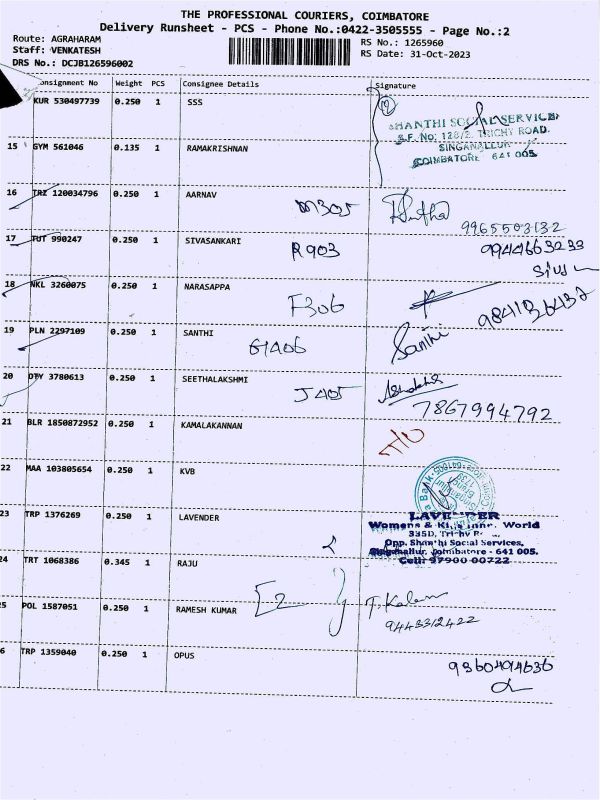 THE PROFESSIONAL COURIERS, COIMBATORE
Delivery Runsheet - PCS - Phone No.:0422-3505555 - Page No.:2
Route: AGRAHARAM
Staff: VENKATESH
DRS No.: DCJB126596002
RS No.: 1265960
RS Date: 31-Oct-2023
Consignment No Weight PCS Consignee Details Signature
KUR 530497739 0.250 1 SSS
SHANTHI SOCIAL SERVICE
S.F. No: 128/2, TRICHY ROAD,
SINGANALLUR
COIMBATORE 641 005
15 GYM 561046 0.135 1 RAMAKRISHNAN
16 TRZ 120034796 0.250 1 AARNAV M305
9965503132
17 TUT 990247 0.250 1 SIVASANKARI R903 9944663233
18 NKL 3260075 0.250 1 NARASAPPA F306 9841136432
19 PLN 2297109 0.250 1 SANTHI G1406 Santhi
20 OTY 3780613 0.250 1 SEETHALAKSHMI J405
7867994792
21 BLR 1850872952 0.250 1 KAMALAKANNAN
22 MAA 103805654 0.250 1 KVB
23 TRP 1376269 0.250 1 LAVENDER
LAVENDER
Womens & Kids Innr. World
335D, Trichy R
Opp. Shanthi Social Services,
Singanallur, Coimbatore - 641 005.
Cell: 97900 00722
24 TRT 1068386 0.345 1 RAJU
25 POL 1587051 0.250 1 RAMESH KUMAR
9443312422
26 TRP 1359040 0.250 1 OPUS 9360494636